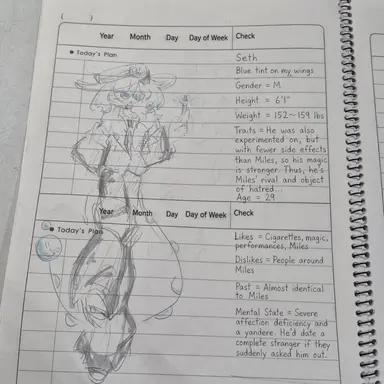 ( )
Year Month Day Day of Week Check
Today's Plan
Seth
Blue tint on my wings
Gender = M
Height = 6'1"
Weight = 152~159 lbs
Traits = He was also
experimented on, but
with fewer side effects
than Miles, so his magic
is stronger. Thus, he's
Miles' rival and object
of hatred...
Age = 29
Year Month Day Day of Week Check
Today's Plan
Likes = Cigarettes, magic,
performances, Miles
Dislikes = People around
Miles
Past = Almost identical
to Miles
Mental State = Severe
affection deficiency and
a yandere. He'd date a
complete stranger if they
suddenly asked him out.